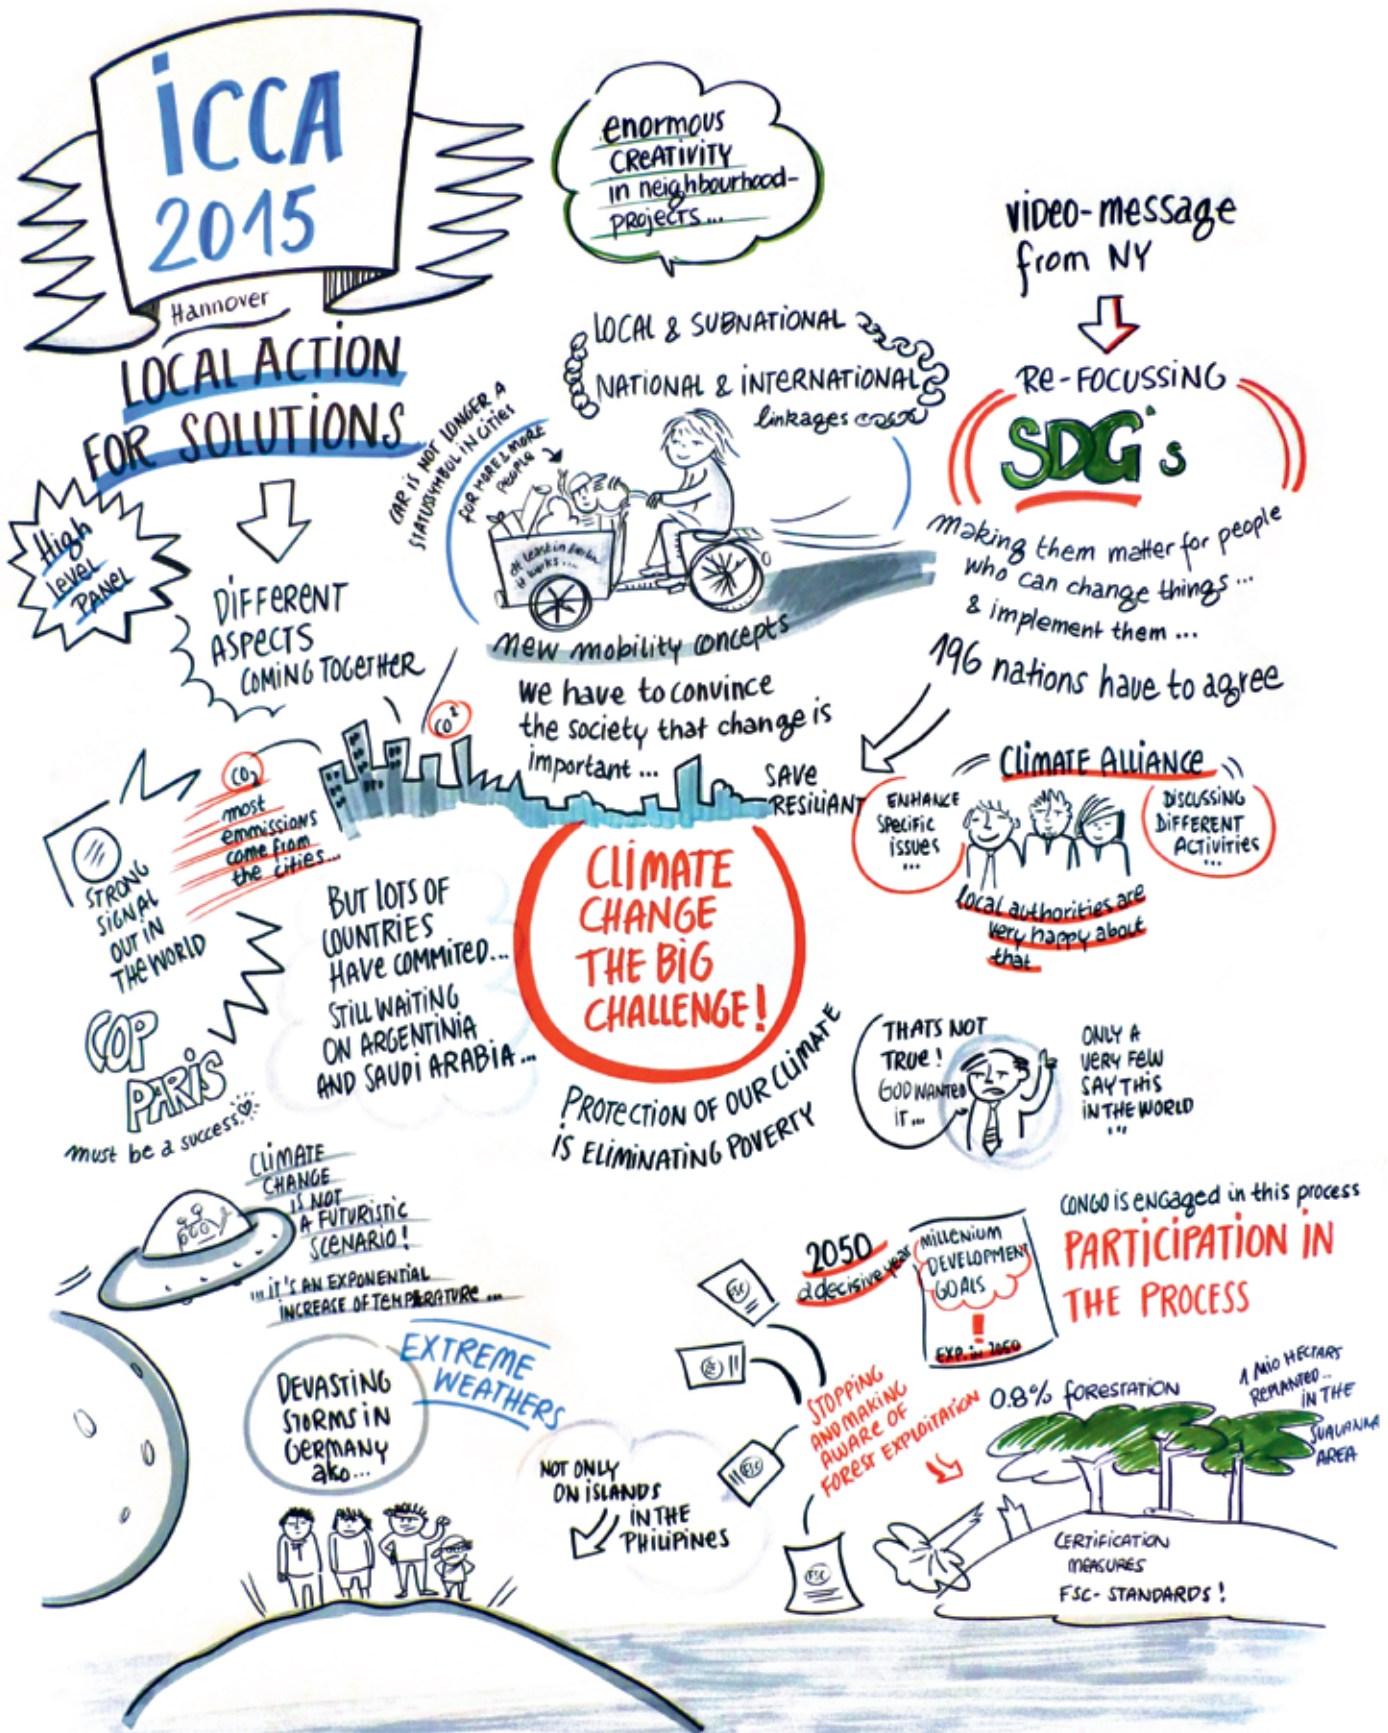 iCCA
2015
Hannover
LOCAL ACTION
FOR SOLUTIONS
High
level
PANEL
DIFFERENT
ASPECTS
COMING TOGETHER
enormous
CREATIVITY
in neighbourhood-
projects...
LOCAL & SUBNATIONAL
NATIONAL & INTERNATIONAL
linkages
CAR IS NOT LONGER A
STATUSSYMBOL IN CITIES
FOR MORE & MORE
PEOPLE
At least in Berlin
it works...
new mobility concepts
we have to convince
the society that change is
important ...
video-message
from NY
RE-FOCUSSING
SDG's
making them matter for people
who can change things ...
& implement them ...
196 nations have to agree
SAVE
RESILIANT
CO²
CO₂
most
emmissions
come from
the cities...
STRONG
SIGNAL
OUT IN
THE WORLD
COP
PARIS
must be a success
BUT LOTS OF
COUNTRIES
HAVE COMMITED...
STILL WAITING
ON ARGENTINIA
AND SAUDI ARABIA ...
CLIMATE
CHANGE
THE BIG
CHALLENGE!
PROTECTION OF OUR CLIMATE
IS ELIMINATING POVERTY
CLIMATE ALLIANCE
ENHANCE
SPECIFIC
ISSUES
...
DISCUSSING
DIFFERENT
ACTIVITIES
...
local authorities are
very happy about
that
THATS NOT
TRUE!
GOD WANTED
IT ...
ONLY A
VERY FEW
SAY THIS
IN THE WORLD
...
CLIMATE
CHANGE
IS NOT
A FUTURISTIC
SCENARIO!
... IT'S AN EXPONENTIAL
INCREASE OF TEMPERATURE ...
EXTREME
WEATHERS
DEVASTING
STORMS IN
GERMANY
ako...
NOT ONLY
ON ISLANDS
IN THE
PHILIPINES
2050
a decisive year
MILLENIUM
DEVELOPMENT
GOALS
!
EXP. in 2050
CONGO IS ENGAGED in this process
PARTICIPATION IN
THE PROCESS
FSC
FSC
FSC
STOPPING
AND MAKING
AWARE OF
FOREST EXPLOITATION
0.8% FORESTATION
1 MIO HECTARS
REPLANTED...
IN THE
SUAVANNA
AREA
CERTIFICATION
MEASURES
FSC-STANDARDS!